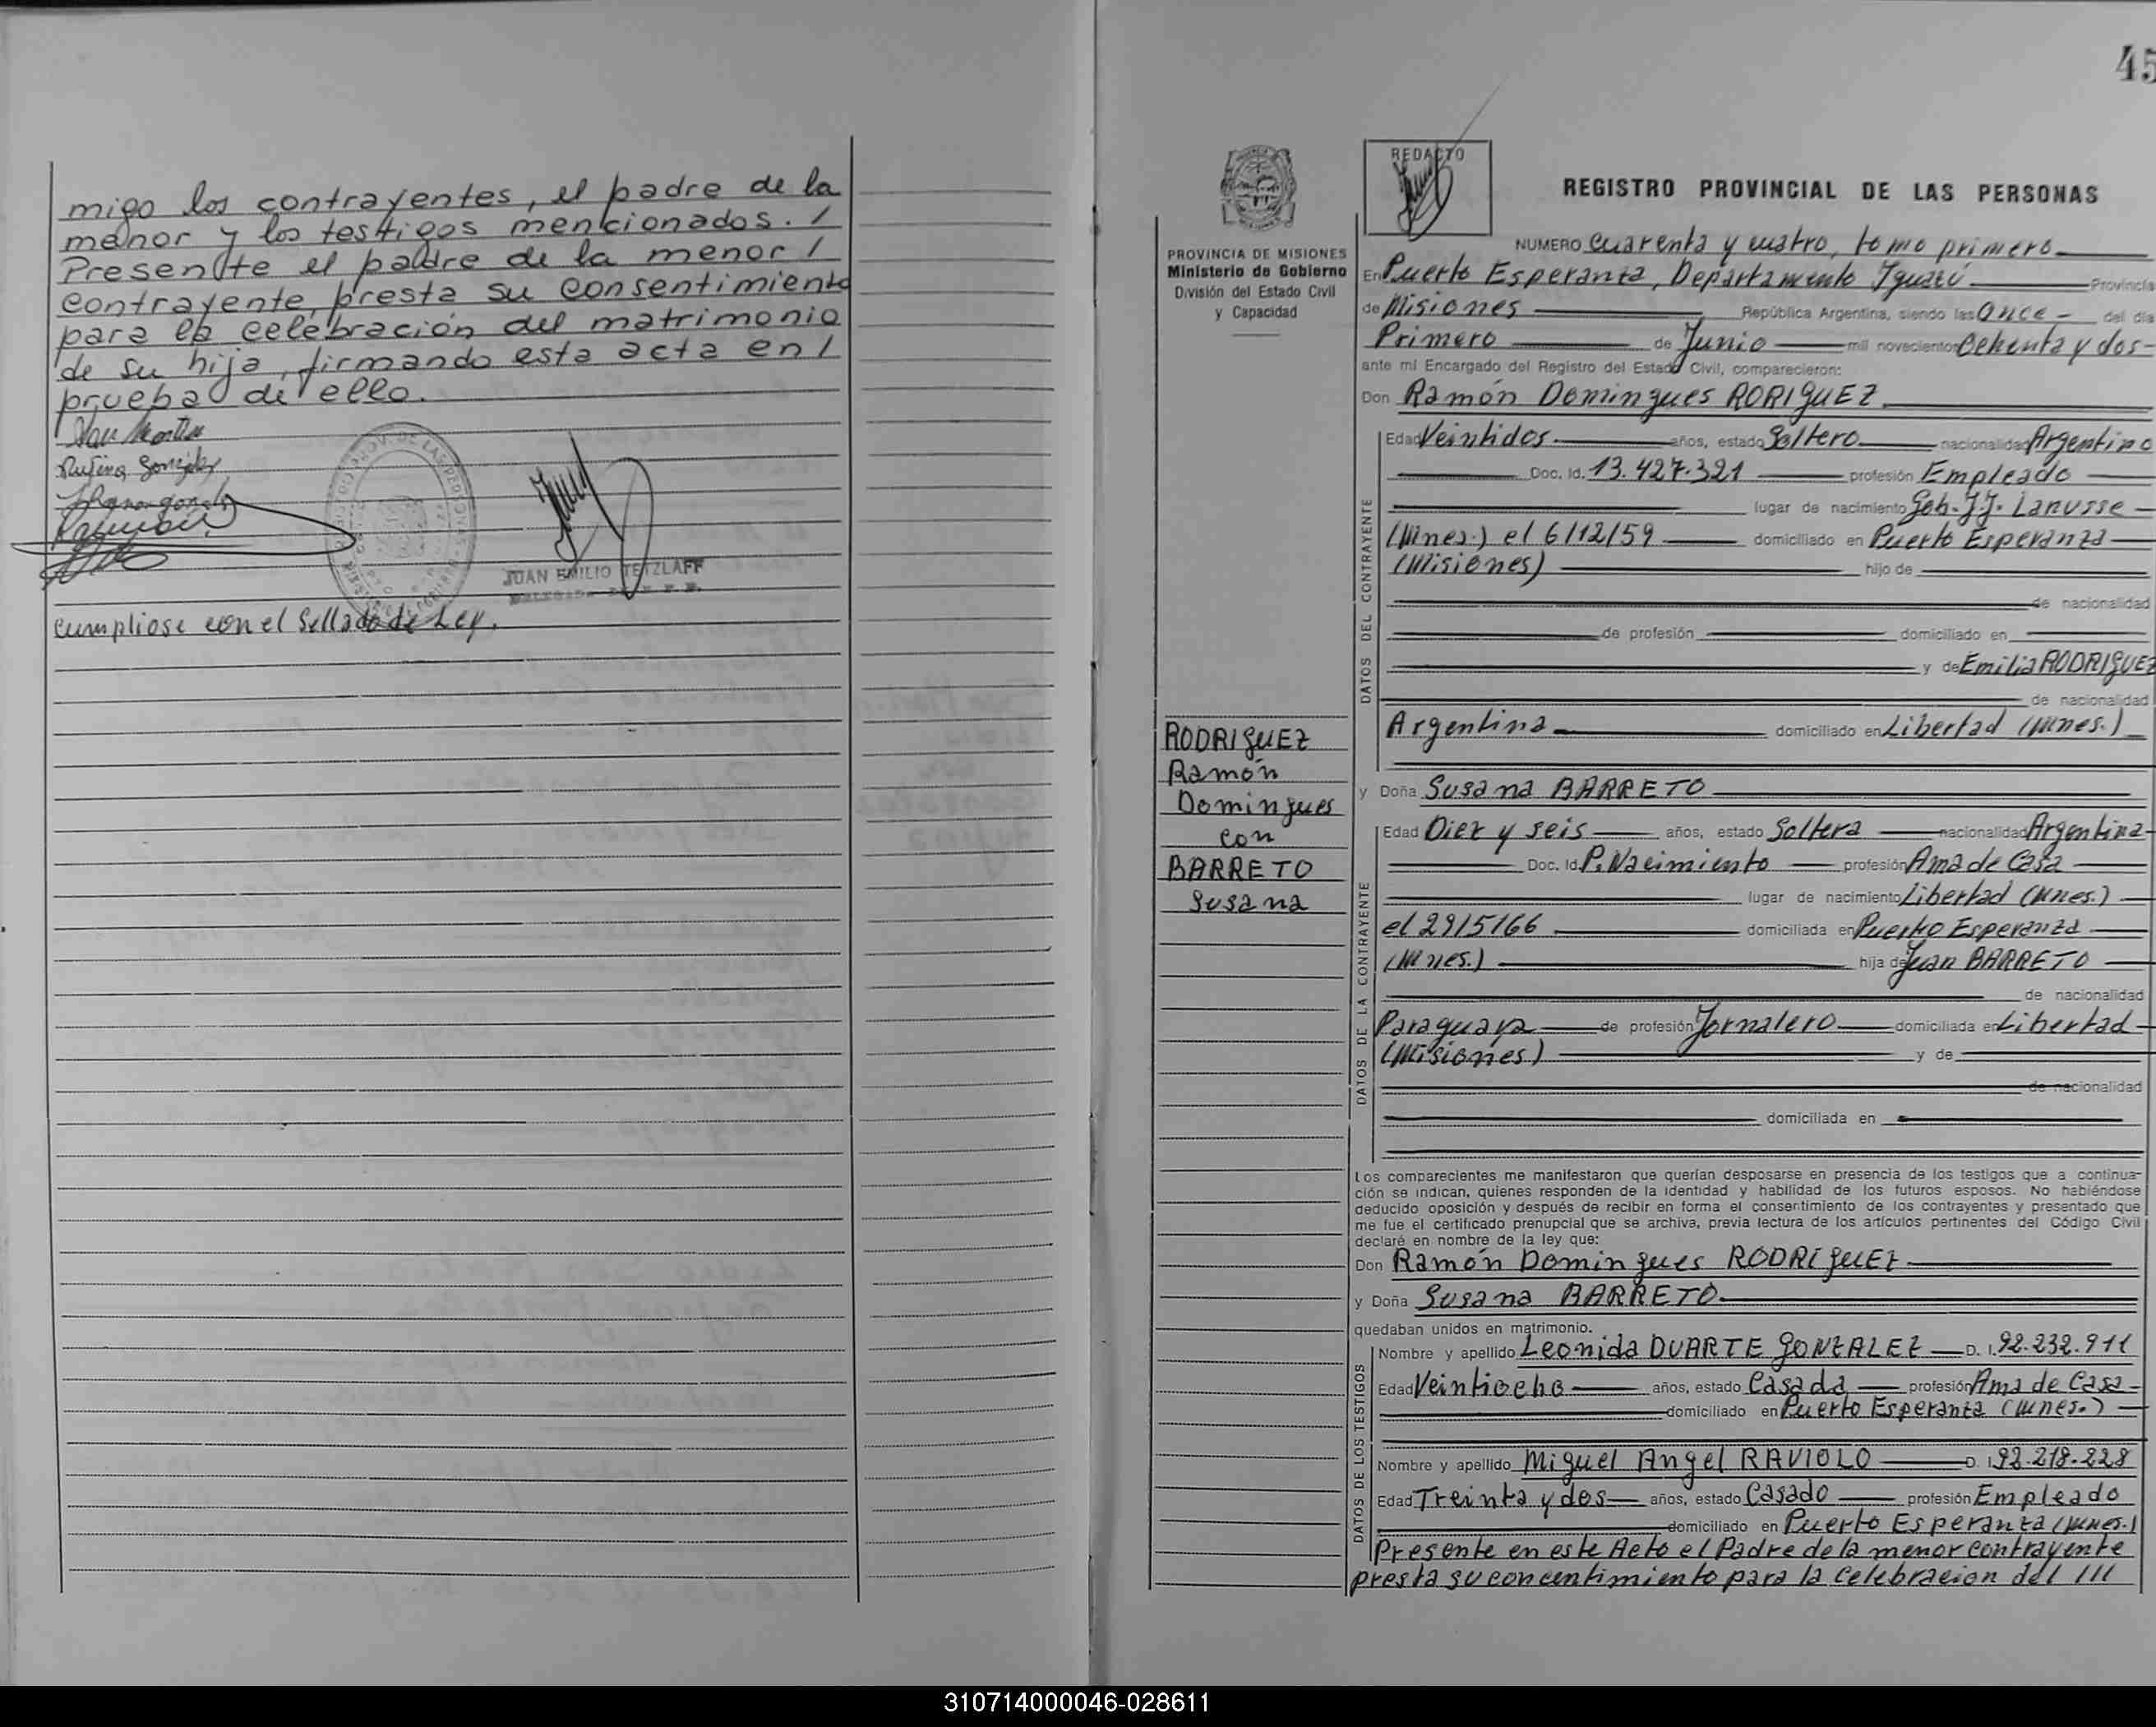 migo los contrayentes, el padre de la
menor y los testigos mencionados. /
Presente el padre de la menor /
contrayente, presta su consentimiento
para la celebración del matrimonio
de su hija, firmando esta acta en /
prueba de ello.
Rufina González
JUAN EMILIO TETZLAFF
cumpliose con el Sellado de Ley.
45
PROVINCIA DE MISIONES
Ministerio de Gobierno
División del Estado Civil
y Capacidad
RODRIGUEZ
Ramón
Domingues
con
BARRETO
Susana
REDACTO
REGISTRO PROVINCIAL DE LAS PERSONAS
NUMERO Cuarenta y cuatro, tomo primero
En Puerto Esperanza, Departamento Iguazú Provincia
de Misiones República Argentina, siendo las Once del día
Primero de Junio mil novecientos Ochenta y dos
ante mi Encargado del Registro del Estado Civil, comparecieron:
Don Ramón Domingues RORIGUEZ
DATOS DEL CONTRAYENTE
Edad Veintidos años, estado Soltero nacionalidad Argentino
Doc. Id. 13.427.321 profesión Empleado
lugar de nacimiento Gob. J.J. Lanusse
(Mnes.) el 6/12/59 domiciliado en Puerto Esperanza
(Misiones) hijo de
de nacionalidad
de profesión domiciliado en
y de Emilia RODRIGUEZ
de nacionalidad
Argentina domiciliado en Libertad (Mnes.)
y Doña Susana BARRETO
DATOS DE LA CONTRAYENTE
Edad Diez y seis años, estado Soltera nacionalidad Argentina
Doc. Id. P. Nacimiento profesión Ama de Casa
lugar de nacimiento Libertad (Mnes.)
el 29/5/66 domiciliada en Puerto Esperanza
(Mnes.) hija de Juan BARRETO
de nacionalidad
Paraguaya de profesión Jornalero domiciliada en Libertad
(Misiones) y de
de nacionalidad
domiciliada en
Los comparecientes me manifestaron que querían desposarse en presencia de los testigos que a continua-
ción se indican, quienes responden de la identidad y habilidad de los futuros esposos. No habiéndose
deducido oposición y después de recibir en forma el consentimiento de los contrayentes y presentado que
me fue el certificado prenupcial que se archiva, previa lectura de los artículos pertinentes del Código Civil
declaré en nombre de la ley que:
Don Ramón Domingues RODRIGUEZ
y Doña Susana BARRETO
quedaban unidos en matrimonio.
DATOS DE LOS TESTIGOS
Nombre y apellido Leonida DUARTE GONZALEZ D. I. 92.232.911
Edad Veintiocho años, estado Casada profesión Ama de Casa
domiciliado en Puerto Esperanza (Mnes.)
Nombre y apellido Miguel Angel RAVIOLO D. I. 92.218.228
Edad Treinta y dos años, estado Casado profesión Empleado
domiciliado en Puerto Esperanza (Mnes.)
Presente en este Acto el Padre de la menor contrayente
presta su concentimiento para la celebracion del ///
310714000046-028611